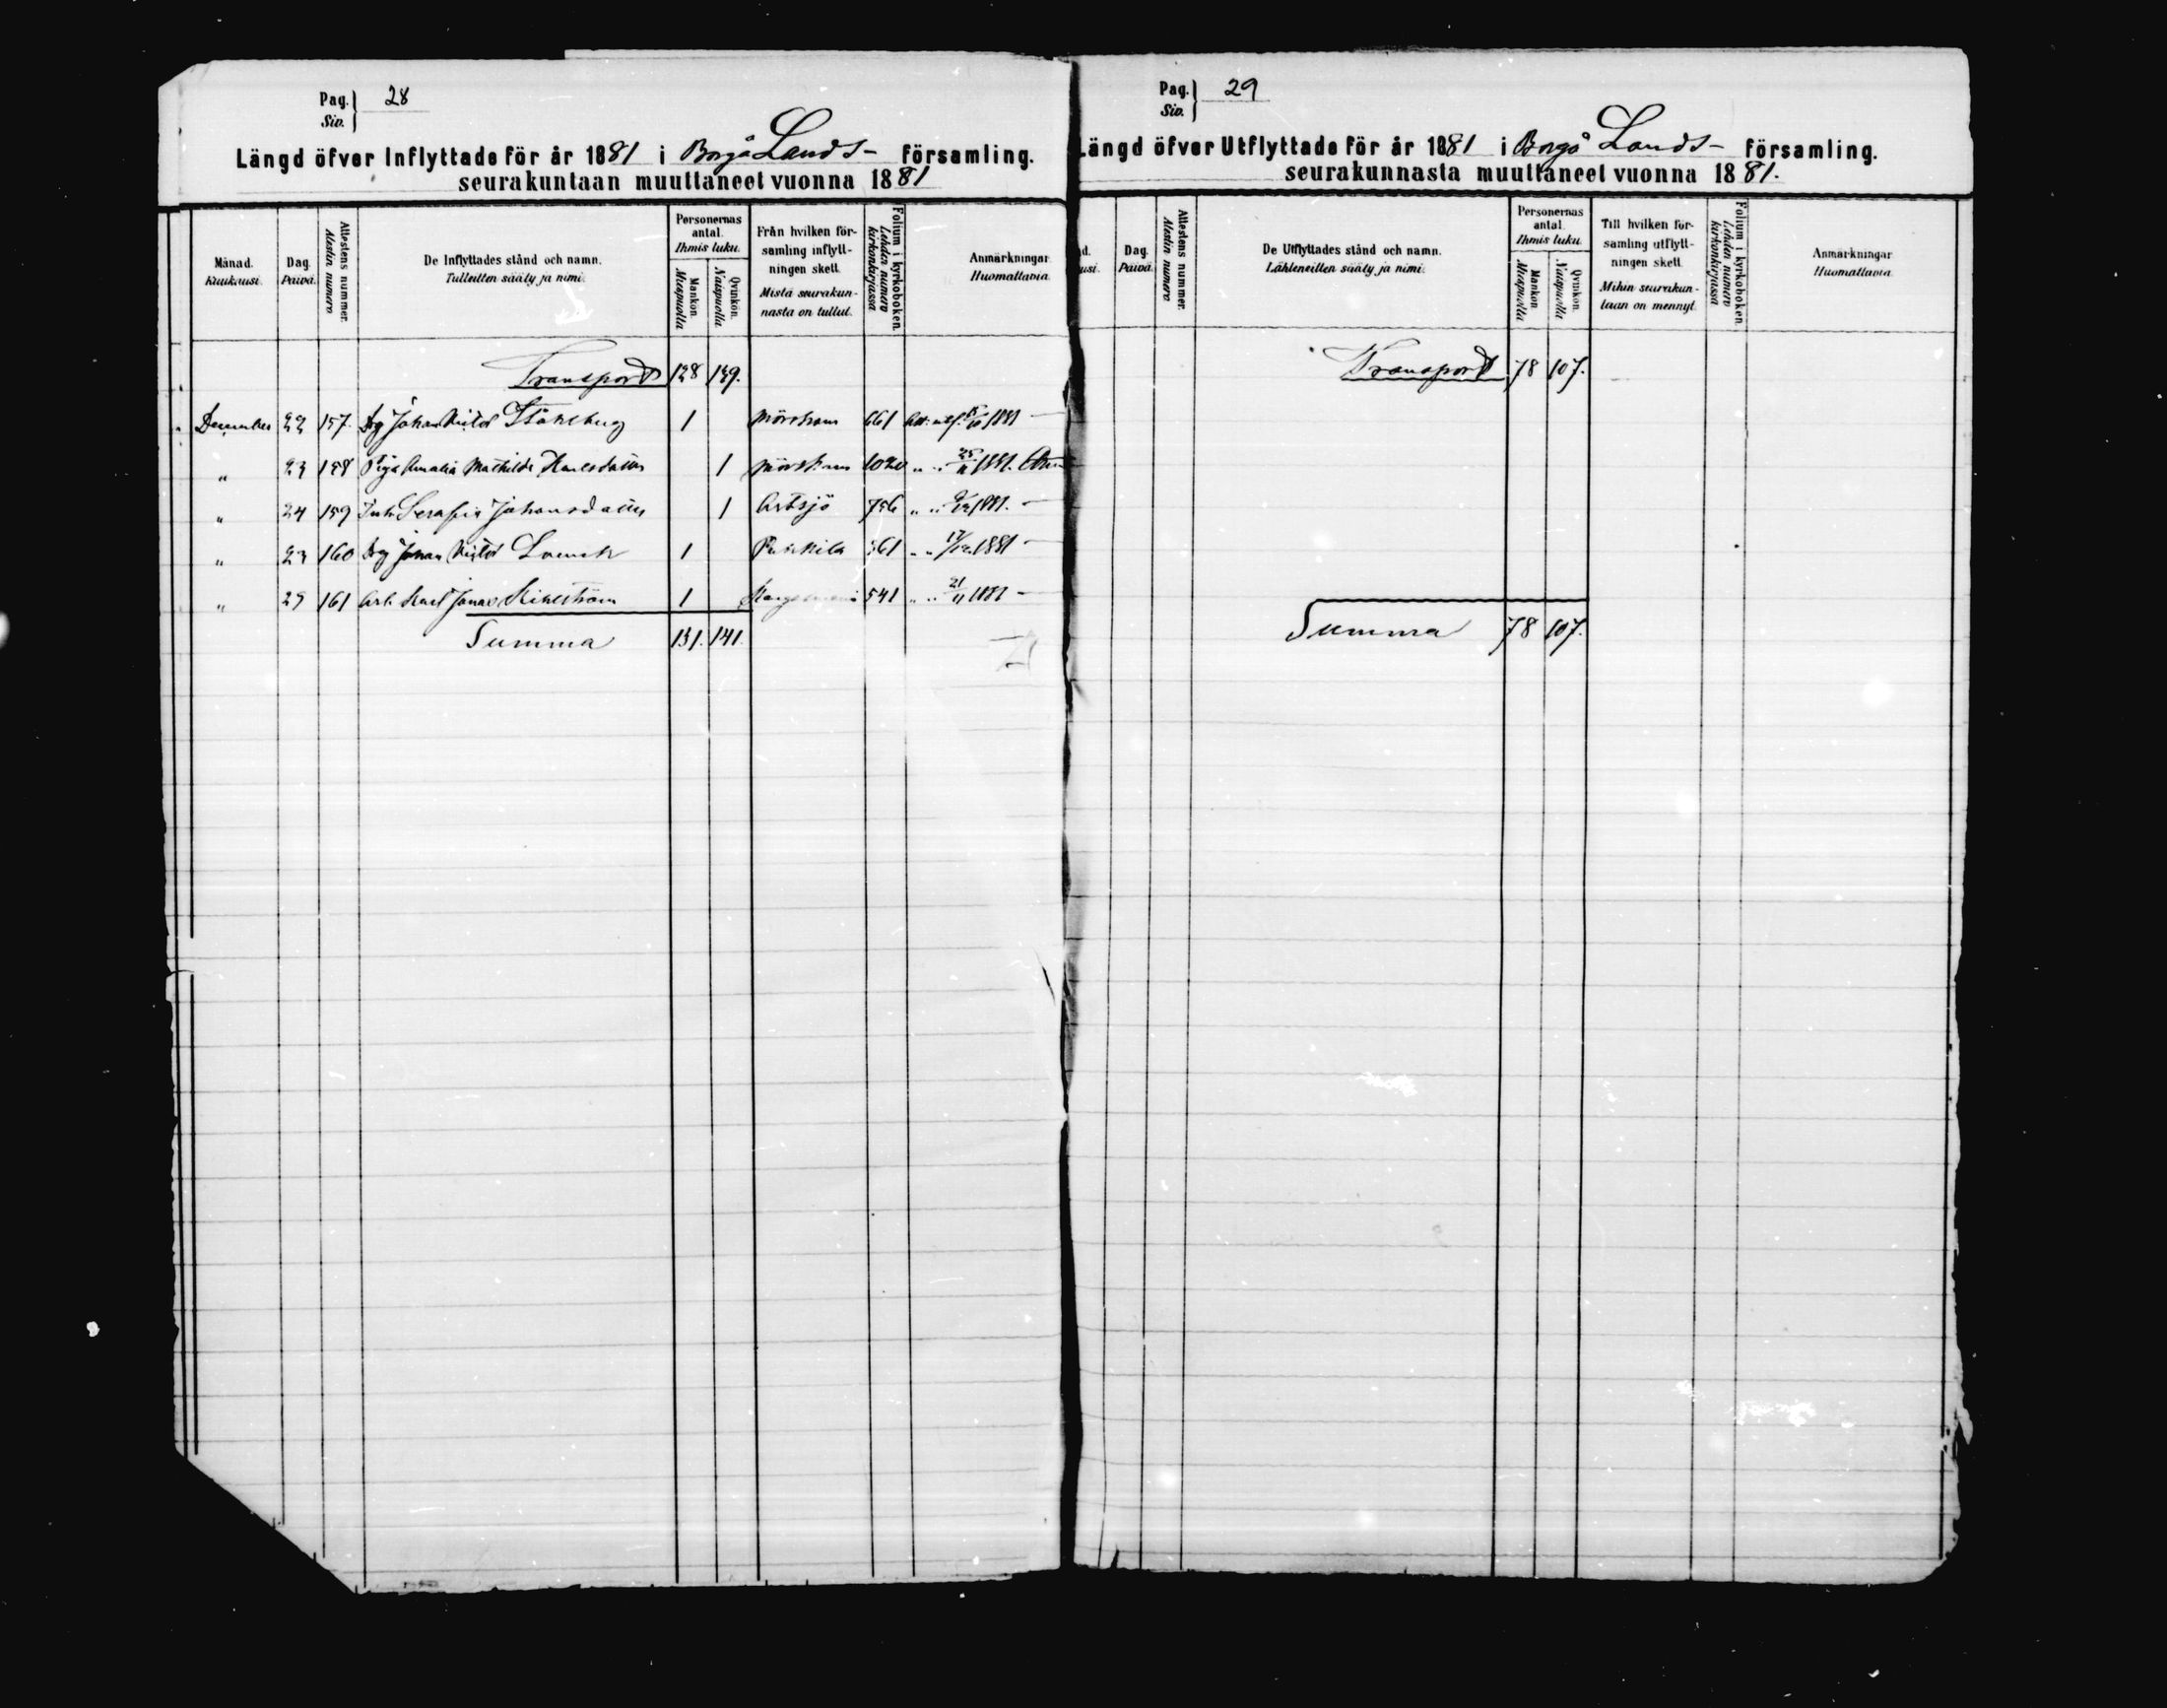 Pag. 28
Siv.
Längd öfver Inflyttade för år 1881 i Borgå Lands- församling.
seurakuntaan muuttaneet vuonna 1881
Månad. Kuukausi. Dag. Päivä. Attestens nummer. Atestin numero De Inflyttades stånd och namn. Tulleitten sääty ja nimi. Personernas antal. Ihmis luku. Mankön. Miespuolia Qvinkön. Naispuolia Från hvilken församling inflyttningen skett. Mistä seurakunnasta on tullut. Folium i kyrkoboken. Lehden numero kirkonkirjassa Anmärkningar. Huomattavia.
Transport 128 139.
December 22 157. Drg Johan Viktor Ståhlberg 1 Mörskom 661 Att. utf. 1881
" 23 158 Piga Amalia Mathilda Karlsdotter 1 Mörskom 1020 " " 25/11 1881.
" 24 159 Inh. Serafia Johansdotter 1 Artsjö 756 " " 1881.
" 23 160 Drg Johan Viktor 1 Pukkila 361 " " 17/12 1881
" 29 161 Arb. Karl Jonas 1 541 " " 21/11 1881
Summa 131. 141.
Pag. 29
Siv.
Längd öfver Utflyttade för år 1881 i Borgå Lands- församling.
seurakunnasta muuttaneet vuonna 1881.
Dag. Päivä. Attestens nummer. Atestin numero De Utflyttades stånd och namn. Lähteneitten sääty ja nimi. Personernas antal. Ihmis luku. Mankön. Miespuolia Qvinkön. Naispuolia Till hvilken församling utflyttningen skett. Mihin seurakuntaan on mennyt. Folium i kyrkoboken. Lehden numero kirkonkirjassa Anmärkningar Huomattavia
Transport 78 107.
Summa 78 107.